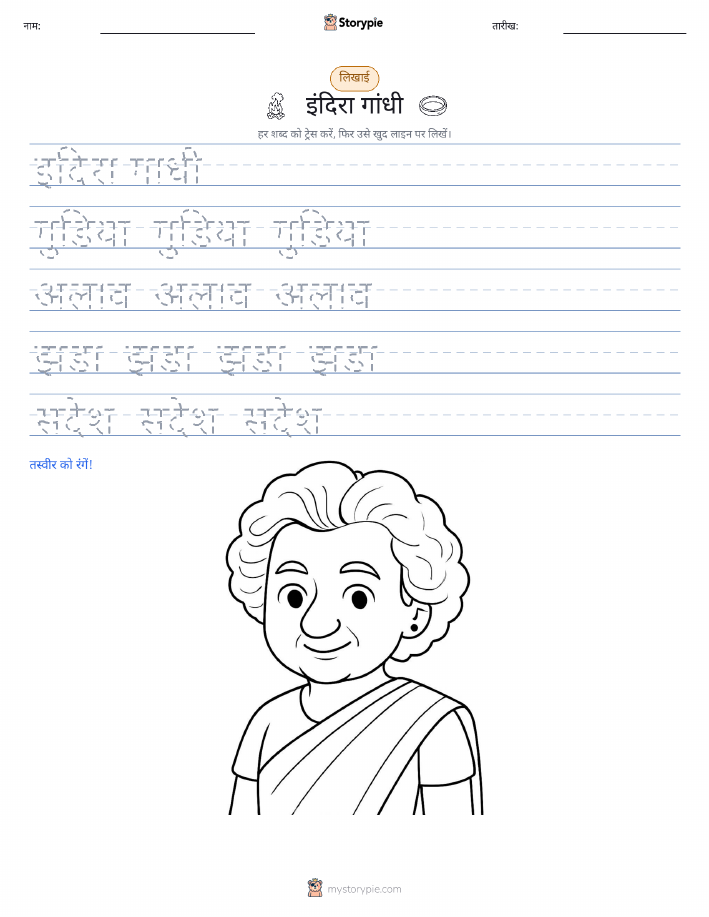 नाम:
Storypie
तारीख:
लिखाई
इंदिरा गांधी
हर शब्द को ट्रेस करें, फिर उसे खुद लाइन पर लिखें।
इदिरा गाधी
गुडिया गुडिया गुडिया
अलाव अलाव अलाव
झडा झडा झडा झडा
सदेश सदेश सदेश
तस्वीर को रंगें!
mystorypie.com